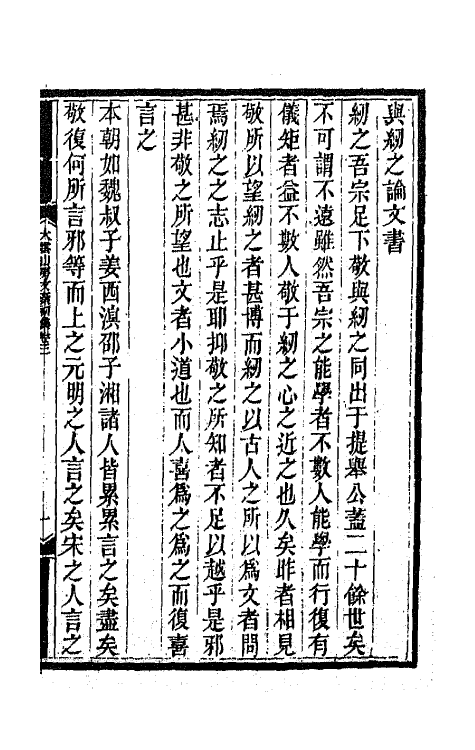 與紉之論文書
紉之吾宗足下敬與紉之同出于提舉公葢二十餘世矣
不可謂不遠雖然吾宗之能學者不數人能學而行復有
儀矩者益不數人敬于紉之心之近之也久矣昨者相見
敬所以望紉之者甚博而紉之以古人之所以爲文者問
焉紉之之志止乎是耶抑敬之所知者不足以越乎是邪
甚非敬之所望也文者小道也而人喜爲之爲之而復喜
言之
本朝如魏叔子姜西溟邵子湘諸人皆累累言之矣盡矣
敬復何所言邪等而上之元明之人言之矣宋之人言之
大雲山房文藁初集卷三
一